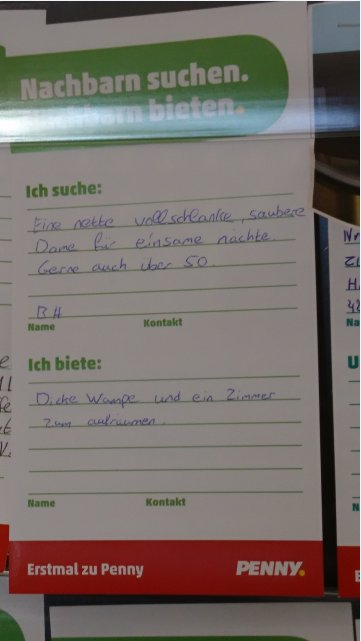 Nachbarn suchen.
Nachbarn bieten.
Ich suche:
Eine nette vollschlanke, saubere
Dame für einsame nächte.
Gerne auch über 50.
BH
Name Kontakt
Ich biete:
Dicke Wampe und ein Zimmer
zum aufräumen.
Name Kontakt
Erstmal zu Penny PENNY.